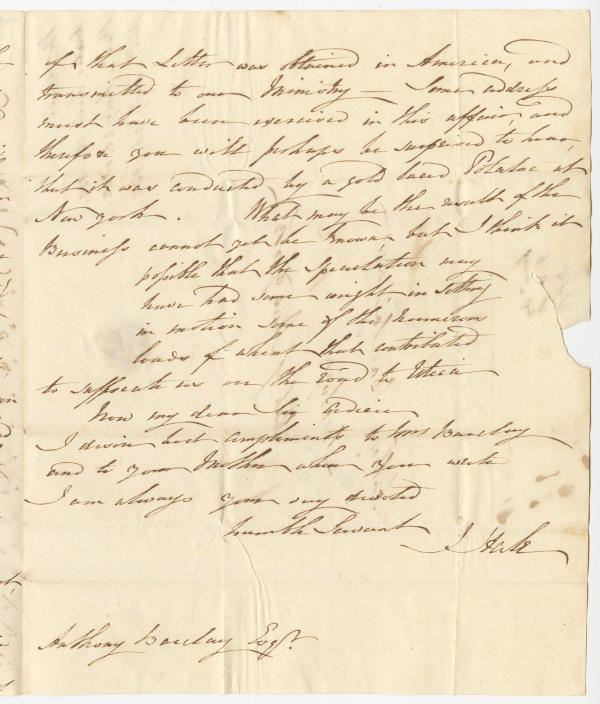 of that Letter was obtained in America, and
transmitted to our Ministry — Some address
must have been exercised in this affair, and
therefore you will perhaps be surprised to hear,
that it was conducted by a gold laced at
New York. What may be the result of the
Business cannot yet be known, but I think it
possible that the speculation may
have had some weight in setting
in motion some of the numerous
loads of wheat that contributed
to suffocate us on the road to Utica
Now my dear Sir Adieu
I desire best compliments to Mrs Barclay
and to your Mother when you write
I am always your very devoted
humble Servant
J Hale
Anthony Barclay Esqr.